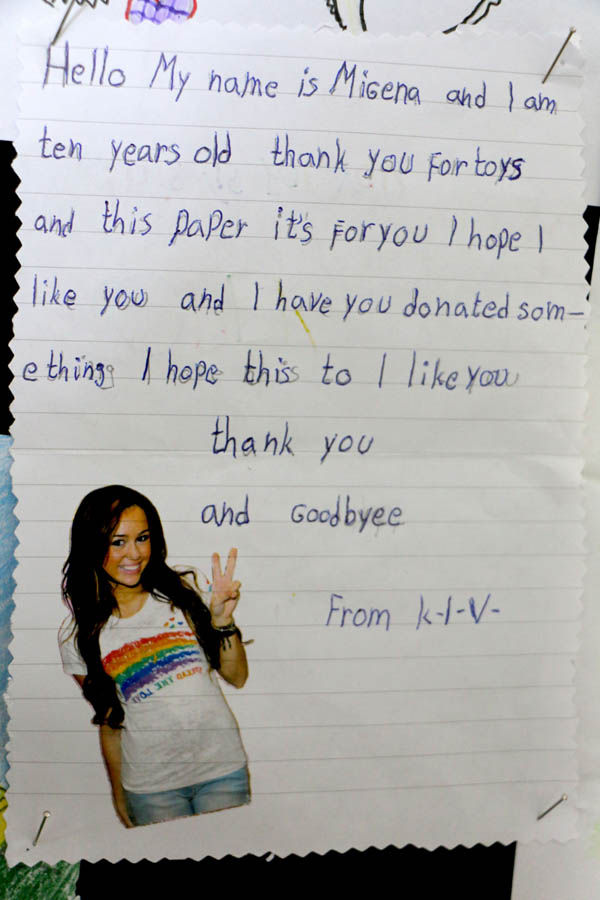 Hello My name is Migena and I am
ten years old thank you For toys
and this paper it's For you I hope I
like you and I have you donated som-
ethings I hope this to I like you
thank you
and Goodbyee
From K-I-V-